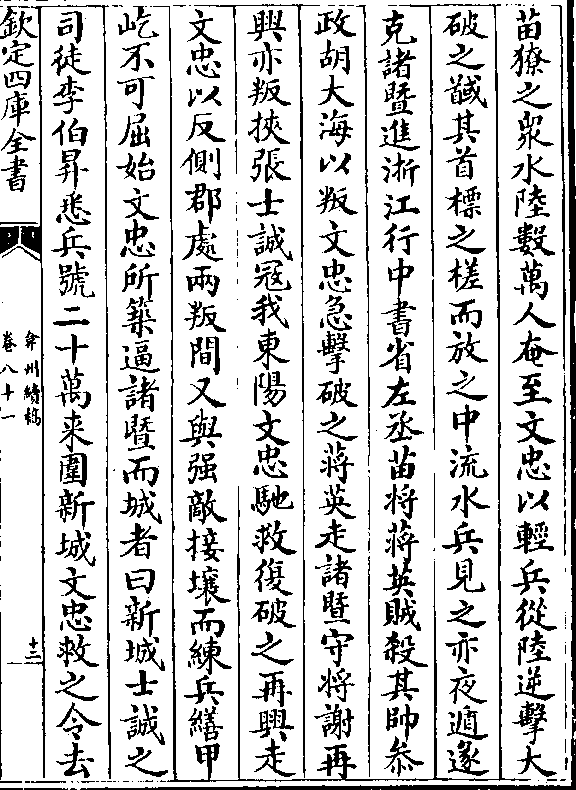 苗獠之衆水陸數萬人奄至文忠以輕兵從陸逆擊大
破之馘其首標之槎而放之中流水兵見之亦夜遁遂
克諸暨進浙江行中書省左丞苗将蔣英賊殺其帥叅
政胡大海以叛文忠急擊破之蔣英走諸暨守将謝再
興亦叛挾張士誠冦我東陽文忠馳救復破之再興走
文忠以反側郡處兩叛間又與强敵接壤而練兵繕甲
屹不可屈始文忠所築逼諸暨而城者曰新城士誠之
司徒李伯昇悉兵號二十萬来圍新城文忠救之令去
欽定四庫全書
弇州續稿
卷八十一
十三